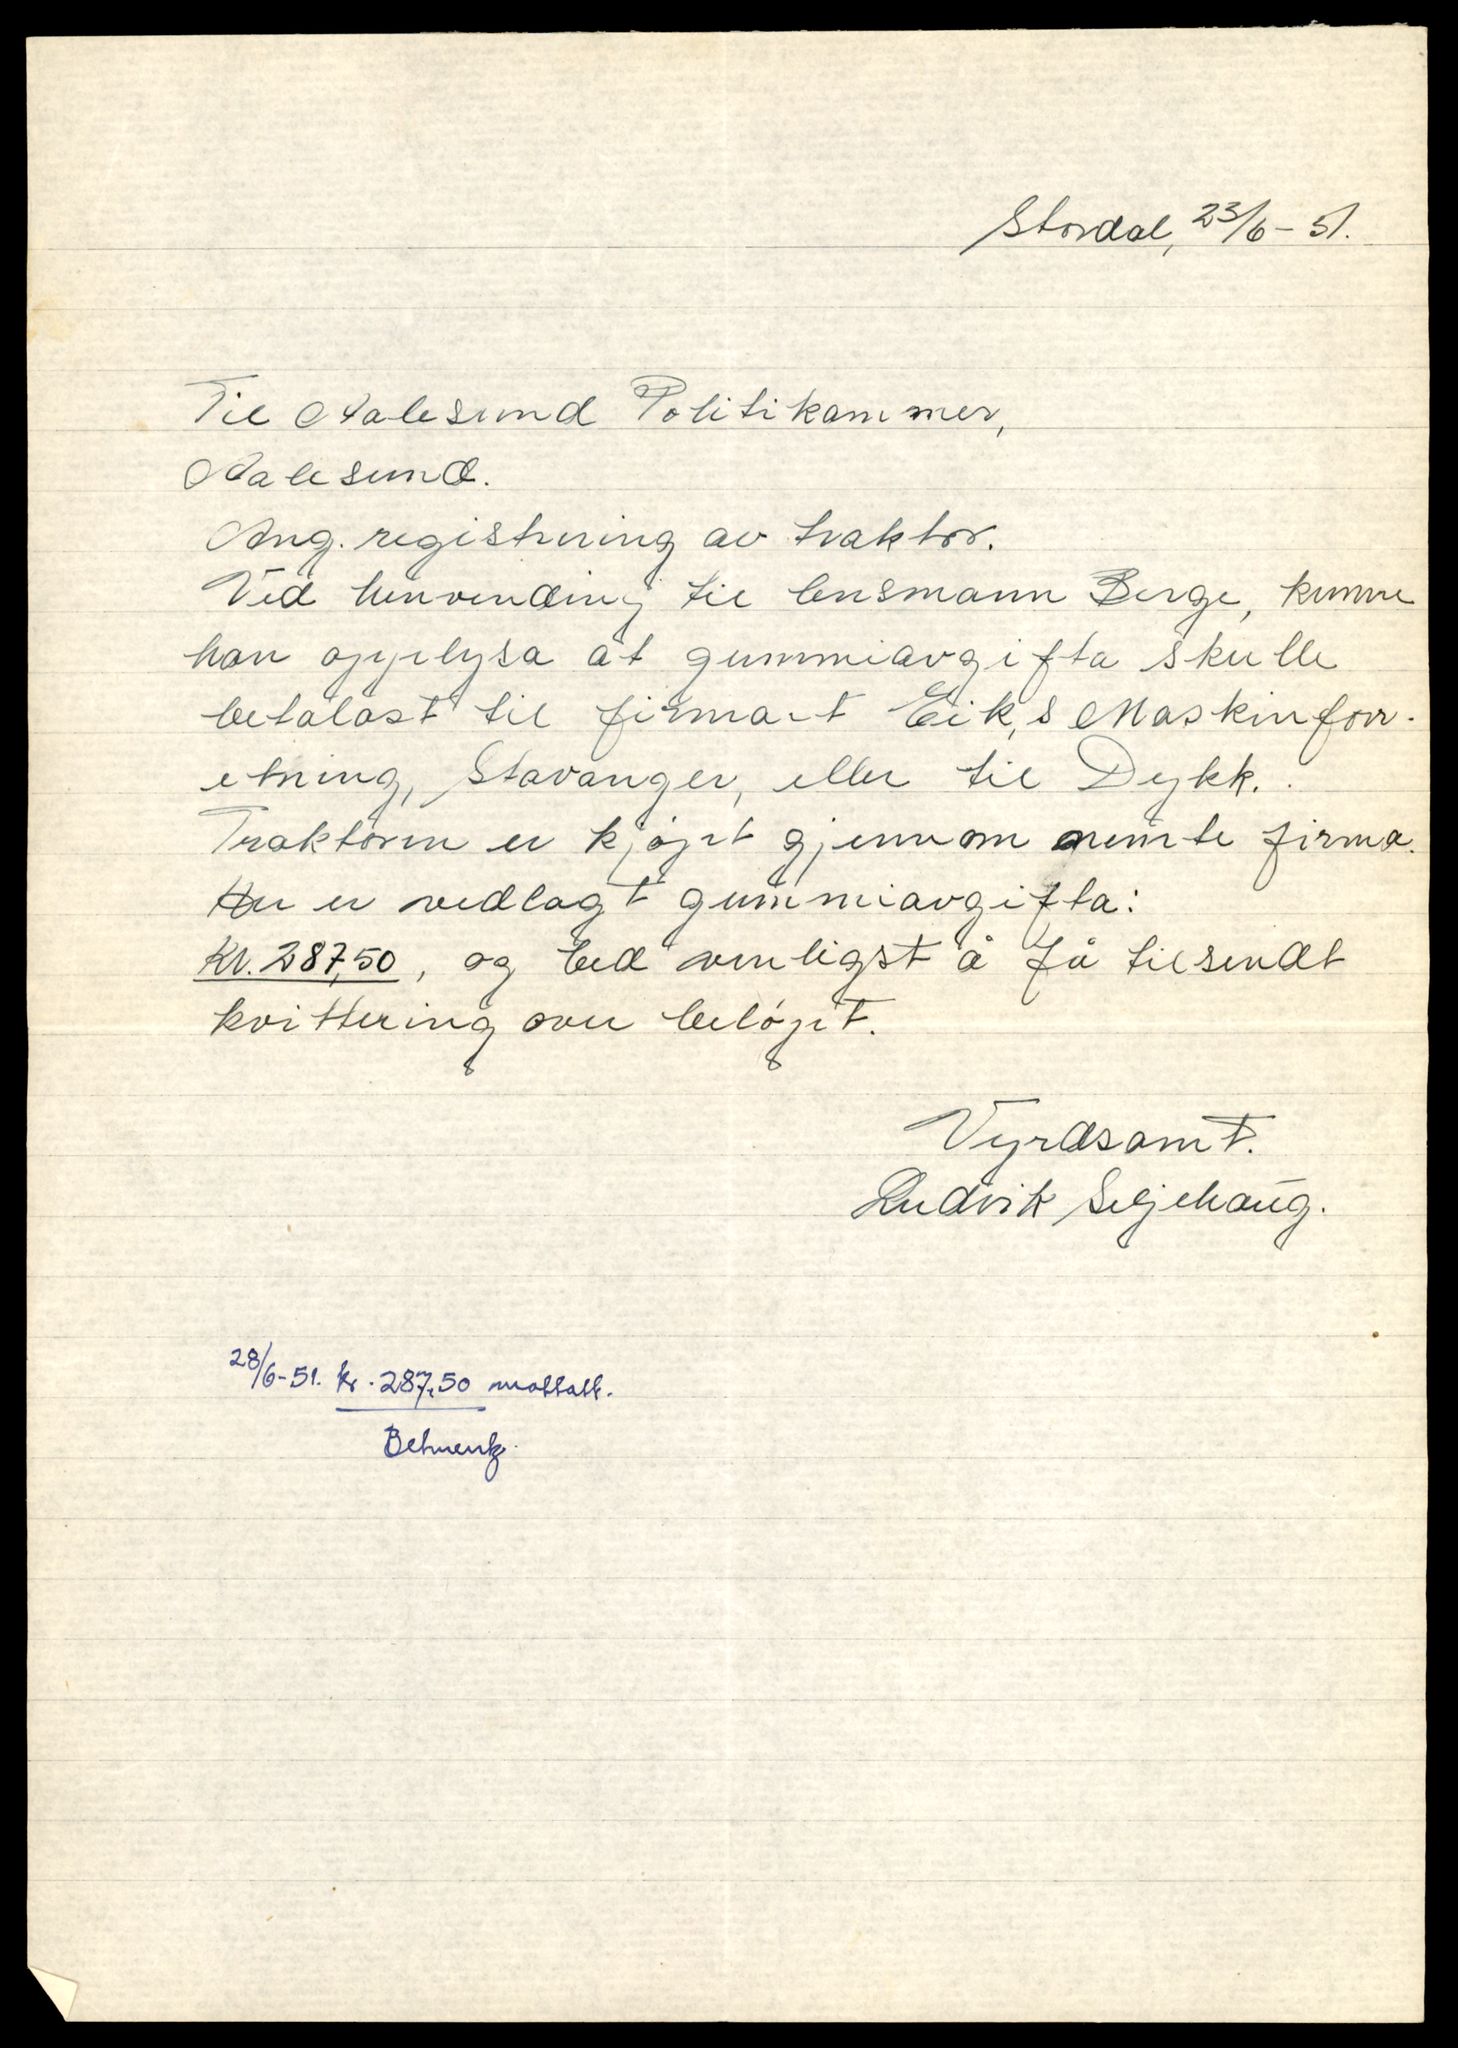 Stordal, 23/6-51.
Til Aalesund Politikammer,
Aalesund.
Ang. registrering av traktor.
Ved henvending til lensmann Berge, kunne
han opplysa at gummiavgifta skulle
betalast til firma-t Eik,s Maskinforr-
etning, Stavanger, eller til Dykk.
Traktoren er kjøpt gjennom nemte firma.
Her er vedlagt gummiavgifta:
Kr. 287,50, og bed venligst å få tilsendt
kvittering over beløpet.
Vyrdsamt.
Ludvik Seljehaug.
28/6-51. kr. 287,50 mottatt.